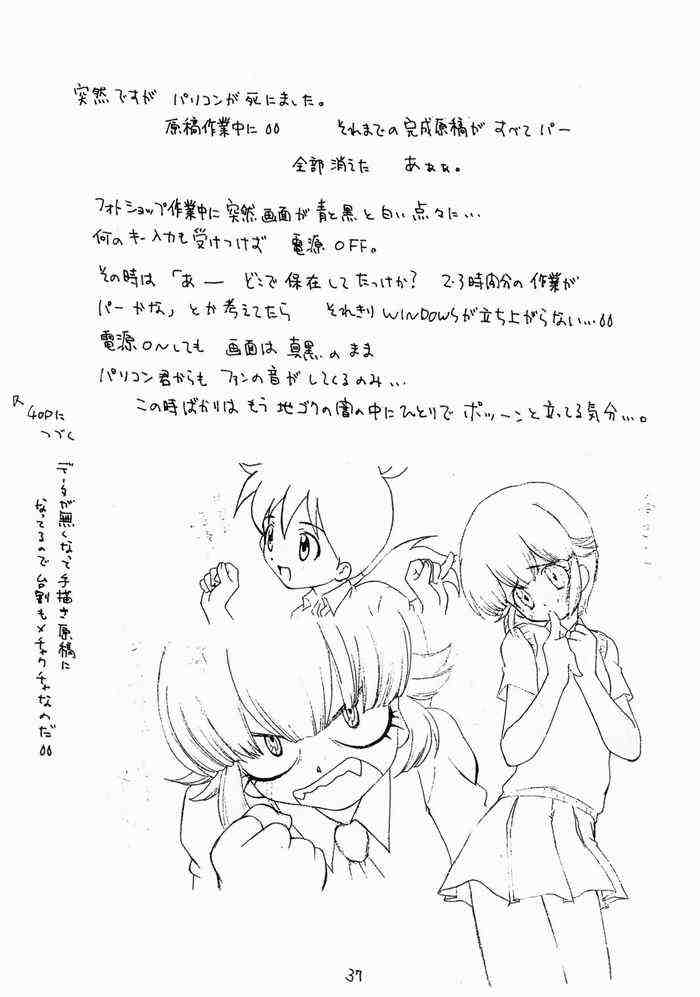 突然ですが パソコンが死にました。
原稿作業中に それまでの完成原稿が すべてパー
全部消えた あぁぁ。
フォトショップ作業中に突然画面が青と黒と白い点々に…
何のキー入力も受けつけば 電源OFF。
その時は「あー どこで保存してたっけか? 2・3時間分の作業が
パーかな」とか考えてたら それきりWINDOWSが立ち上がらない…
電源ONしても 画面は真黒のまま
パソコン君からも ファンの音がしてくるのみ…
この時ばかりは もう地ゴクの闇の中にひとりで ポツーンと立ってる気分…。
40Pに
つづく
データが無くなって手描き原稿に
なってるので台割もメチャクチャなのだ
37